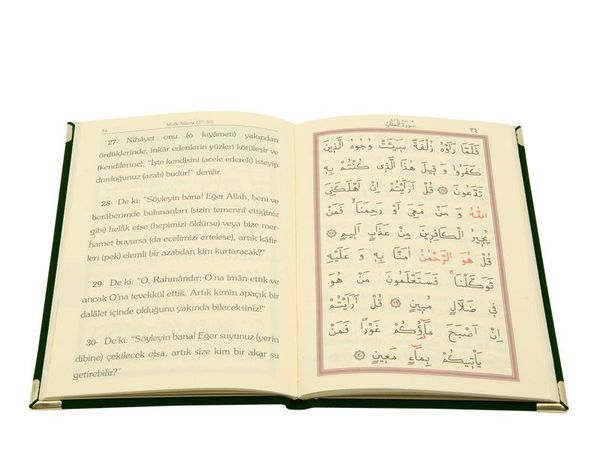 34
Mülk Sûresi (27-30)
27- Nihâyet onu (o kıyâmeti) yakından
ördüklerinde, inkâr edenlerin yüzleri kötüleşir ve
(kendilerine): "İşte kendisini (acele ederek) isteyip
durduğunuz (azab) budur!" denilir.
28- De ki: "Söyleyin bana! Eğer Allah, beni ve
berâberimde bulunanları (sizin temennî ettiğiniz
gibi) helâk etse (hepimizi öldürse) veya bize mer-
hamet buyursa (da ecelimizi ertelese), artık kâfir-
leri (pek) elemli bir azabdan kim kurtaracak?"
29- De ki: "O, Rahmândır; O'na îman ettik ve
ancak O'na tevekkül ettik. Artık kimin apaçık bir
dalâlet içinde olduğunu yakında bileceksiniz!"
30- De ki: "Söyleyin bana! Eğer suyunuz (yerin
dibine) çekilecek olsa, artık size kim bir akar su
getirebilir?"
سُورَةُ الْمُلْكِ
٣٤
فَلَمَّا رَاَوْهُ زُلْفَةً سٓيـَٔتْ وُجُوهُ الَّذ۪ينَ
كَفَرُوا وَ ق۪يلَ هٰذَا الَّذ۪ي كُنْتُمْ بِه۪
تَدَّعُونَ ۝ قُلْ اَرَاَيْتُمْ اِنْ اَهْلَكَنِيَ
اللّٰهُ وَ مَنْ مَعِيَ اَوْ رَحِمَنَاۙ فَمَنْ
يُج۪يرُ الْكَافِر۪ينَ مِنْ عَذَابٍ اَل۪يمٍ ۝
قُلْ هُوَ الرَّحْمٰنُ اٰمَنَّا بِه۪ وَ عَلَيْهِ
تَوَكَّلْنَاۚ فَسَتَعْلَمُونَ مَنْ هُوَ
ف۪ي ضَلَالٍ مُب۪ينٍ ۝ قُلْ اَرَاَيْتُمْ
اِنْ اَصْبَحَ مَٓاؤُ۬كُمْ غَوْرًا فَمَنْ
يَأْت۪يكُمْ بِمَٓاءٍ مَع۪ينٍ ۝